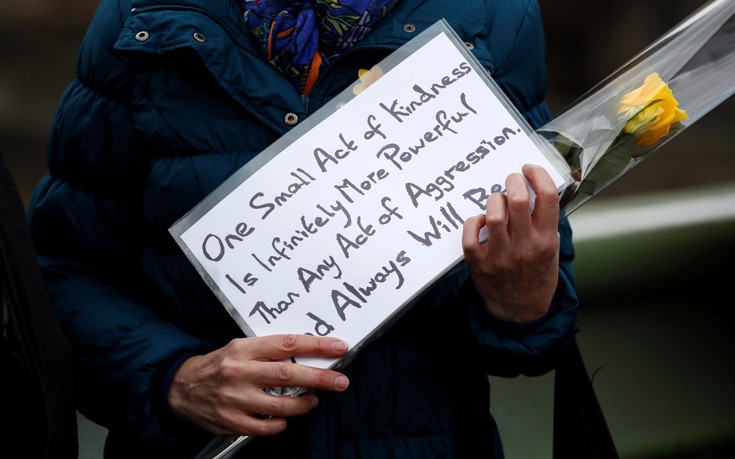 One Small Act of Kindness
Is Infinitely More Powerful
Than Any Act of Aggression.
And Always Will Be